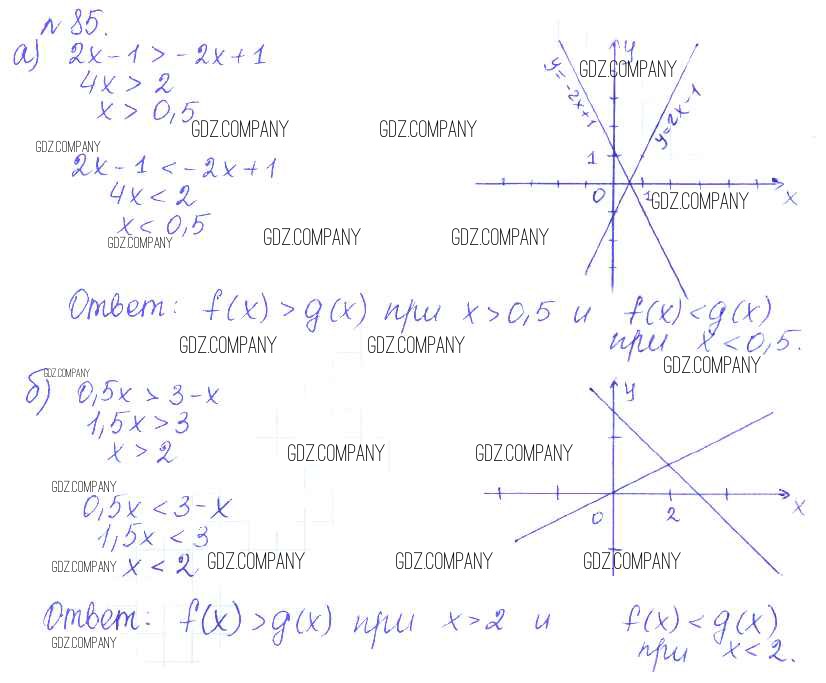 N 85.
а) 2x - 1 > - 2x + 1
4x > 2
x > 0,5
GDZ.COMPANY GDZ.COMPANY
GDZ.COMPANY
2x - 1 < - 2x + 1
4x < 2
x < 0,5
GDZ.COMPANY GDZ.COMPANY GDZ.COMPANY
y
GDZ.COMPANY
y = -2x+1
y = 2x - 1
1
0 1 x
GDZ.COMPANY
Ответ: f(x) > g(x) при x > 0,5 и f(x) < g(x)
при x < 0,5.
GDZ.COMPANY GDZ.COMPANY GDZ.COMPANY
GDZ.COMPANY
б) 0,5x > 3 - x
1,5x > 3
x > 2
GDZ.COMPANY GDZ.COMPANY
GDZ.COMPANY
0,5x < 3 - x
1,5x < 3
x < 2
GDZ.COMPANY GDZ.COMPANY GDZ.COMPANY GDZ.COMPANY
y
0 2 x
Ответ: f(x) > g(x) при x > 2 и f(x) < g(x)
при x < 2.
GDZ.COMPANY